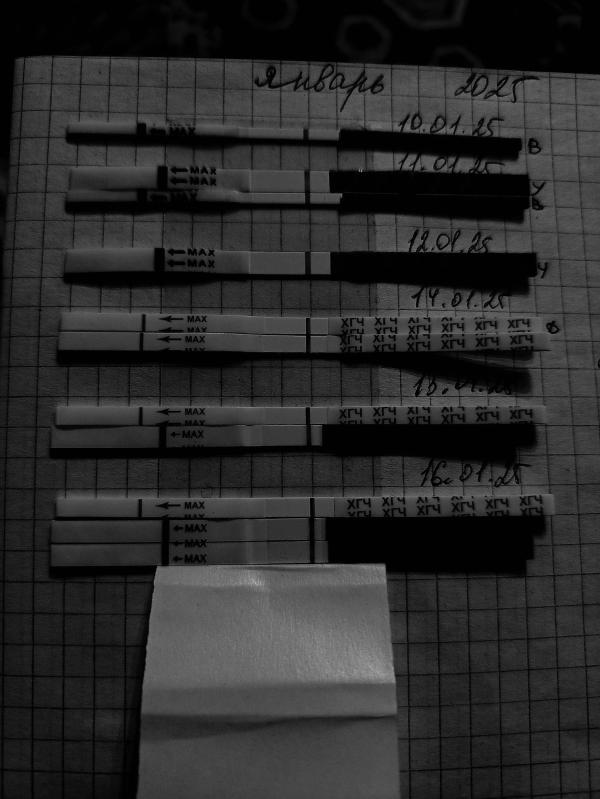 январь 2025
10.01.25
MAX В
11.01.25
MAX
MAX У
MAX В
12.01.25
MAX
MAX У
14.01.25
MAX ХГЧ ХГЧ ХГЧ ХГЧ ХГЧ ХГЧ В
MAX
MAX ХГЧ ХГЧ ХГЧ ХГЧ ХГЧ ХГЧ
MAX ХГЧ ХГЧ ХГЧ ХГЧ ХГЧ ХГЧ
15.01.25
MAX ХГЧ ХГЧ ХГЧ ХГЧ ХГЧ ХГЧ
MAX ХГЧ ХГЧ ХГЧ ХГЧ ХГЧ ХГЧ
MAX
16.01.25
MAX ХГЧ ХГЧ ХГЧ ХГЧ ХГЧ ХГЧ
MAX ХГЧ ХГЧ ХГЧ ХГЧ ХГЧ ХГЧ
MAX
MAX
MAX